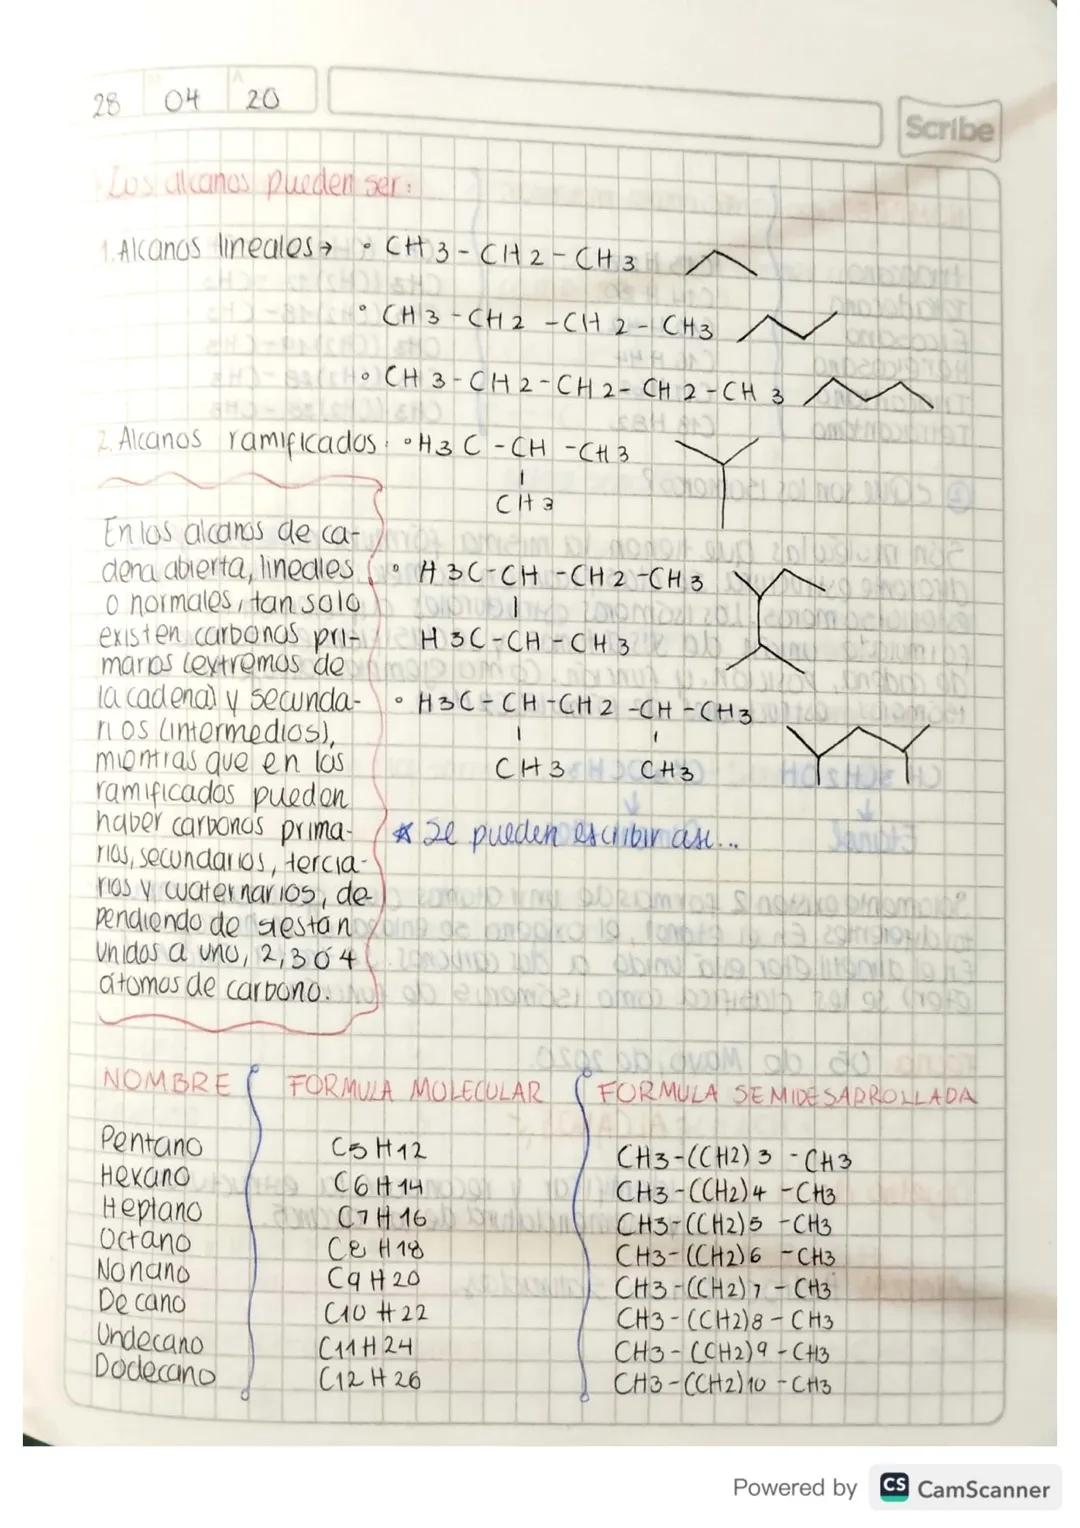 28 04 20
Scribe
Los alcanos pueden ser:
1. Alcanos lineales → ∘ CH3-CH2-CH3
∘ CH3-CH2-CH2-CH3
∘ CH3-CH2-CH2-CH2-CH3
2. Alcanos ramificados: ∘ H3C-CH-CH3
CH3
En los alcanos de ca-
dena abierta, lineales
o normales, tan solo
existen carbonos pri-
marios (extremos de
la cadena) y secunda-
rios (intermedios),
mientras que en los
ramificados pueden
haber carbonos prima-
rios, secundarios, tercia-
rios y cuaternarios, de-
pendiendo de si están
unidos a uno, 2, 3 ó 4
átomos de carbono.
∘ H3C-CH-CH2-CH3
H3C-CH-CH3
∘ H3C-CH-CH2-CH-CH3
CH3 CH3
* Se pueden escribir así...
NOMBRE FORMULA MOLECULAR FORMULA SEMIDESADROLLADA
Pentano C5H12 CH3-((CH2)3-CH3
Hexano C6H14 CH3-((CH2)4-CH3
Heptano C7H16 CH3-((CH2)5-CH3
Octano C8H18 CH3-((CH2)6-CH3
Nonano C9H20 CH3-((CH2)7-CH3
Decano C10H22 CH3-((CH2)8-CH3
Undecano C11H24 CH3-((CH2)9-CH3
Dodecano C12H26 CH3-((CH2)10-CH3
Powered by CS CamScanner